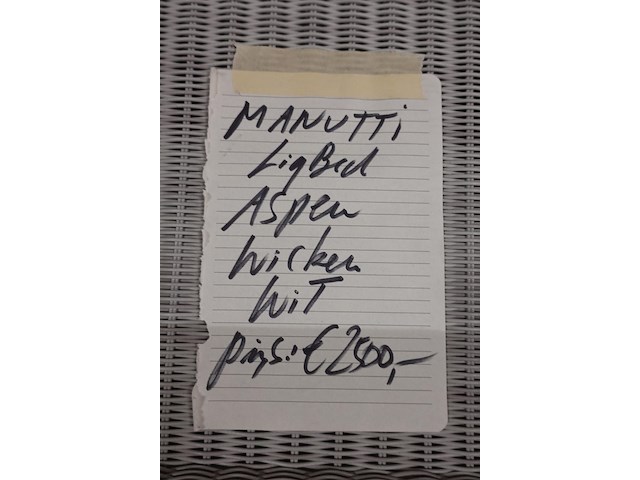 MANUTTi
LigBed
Aspen
Wicker
WiT
prijs: € 2500,-